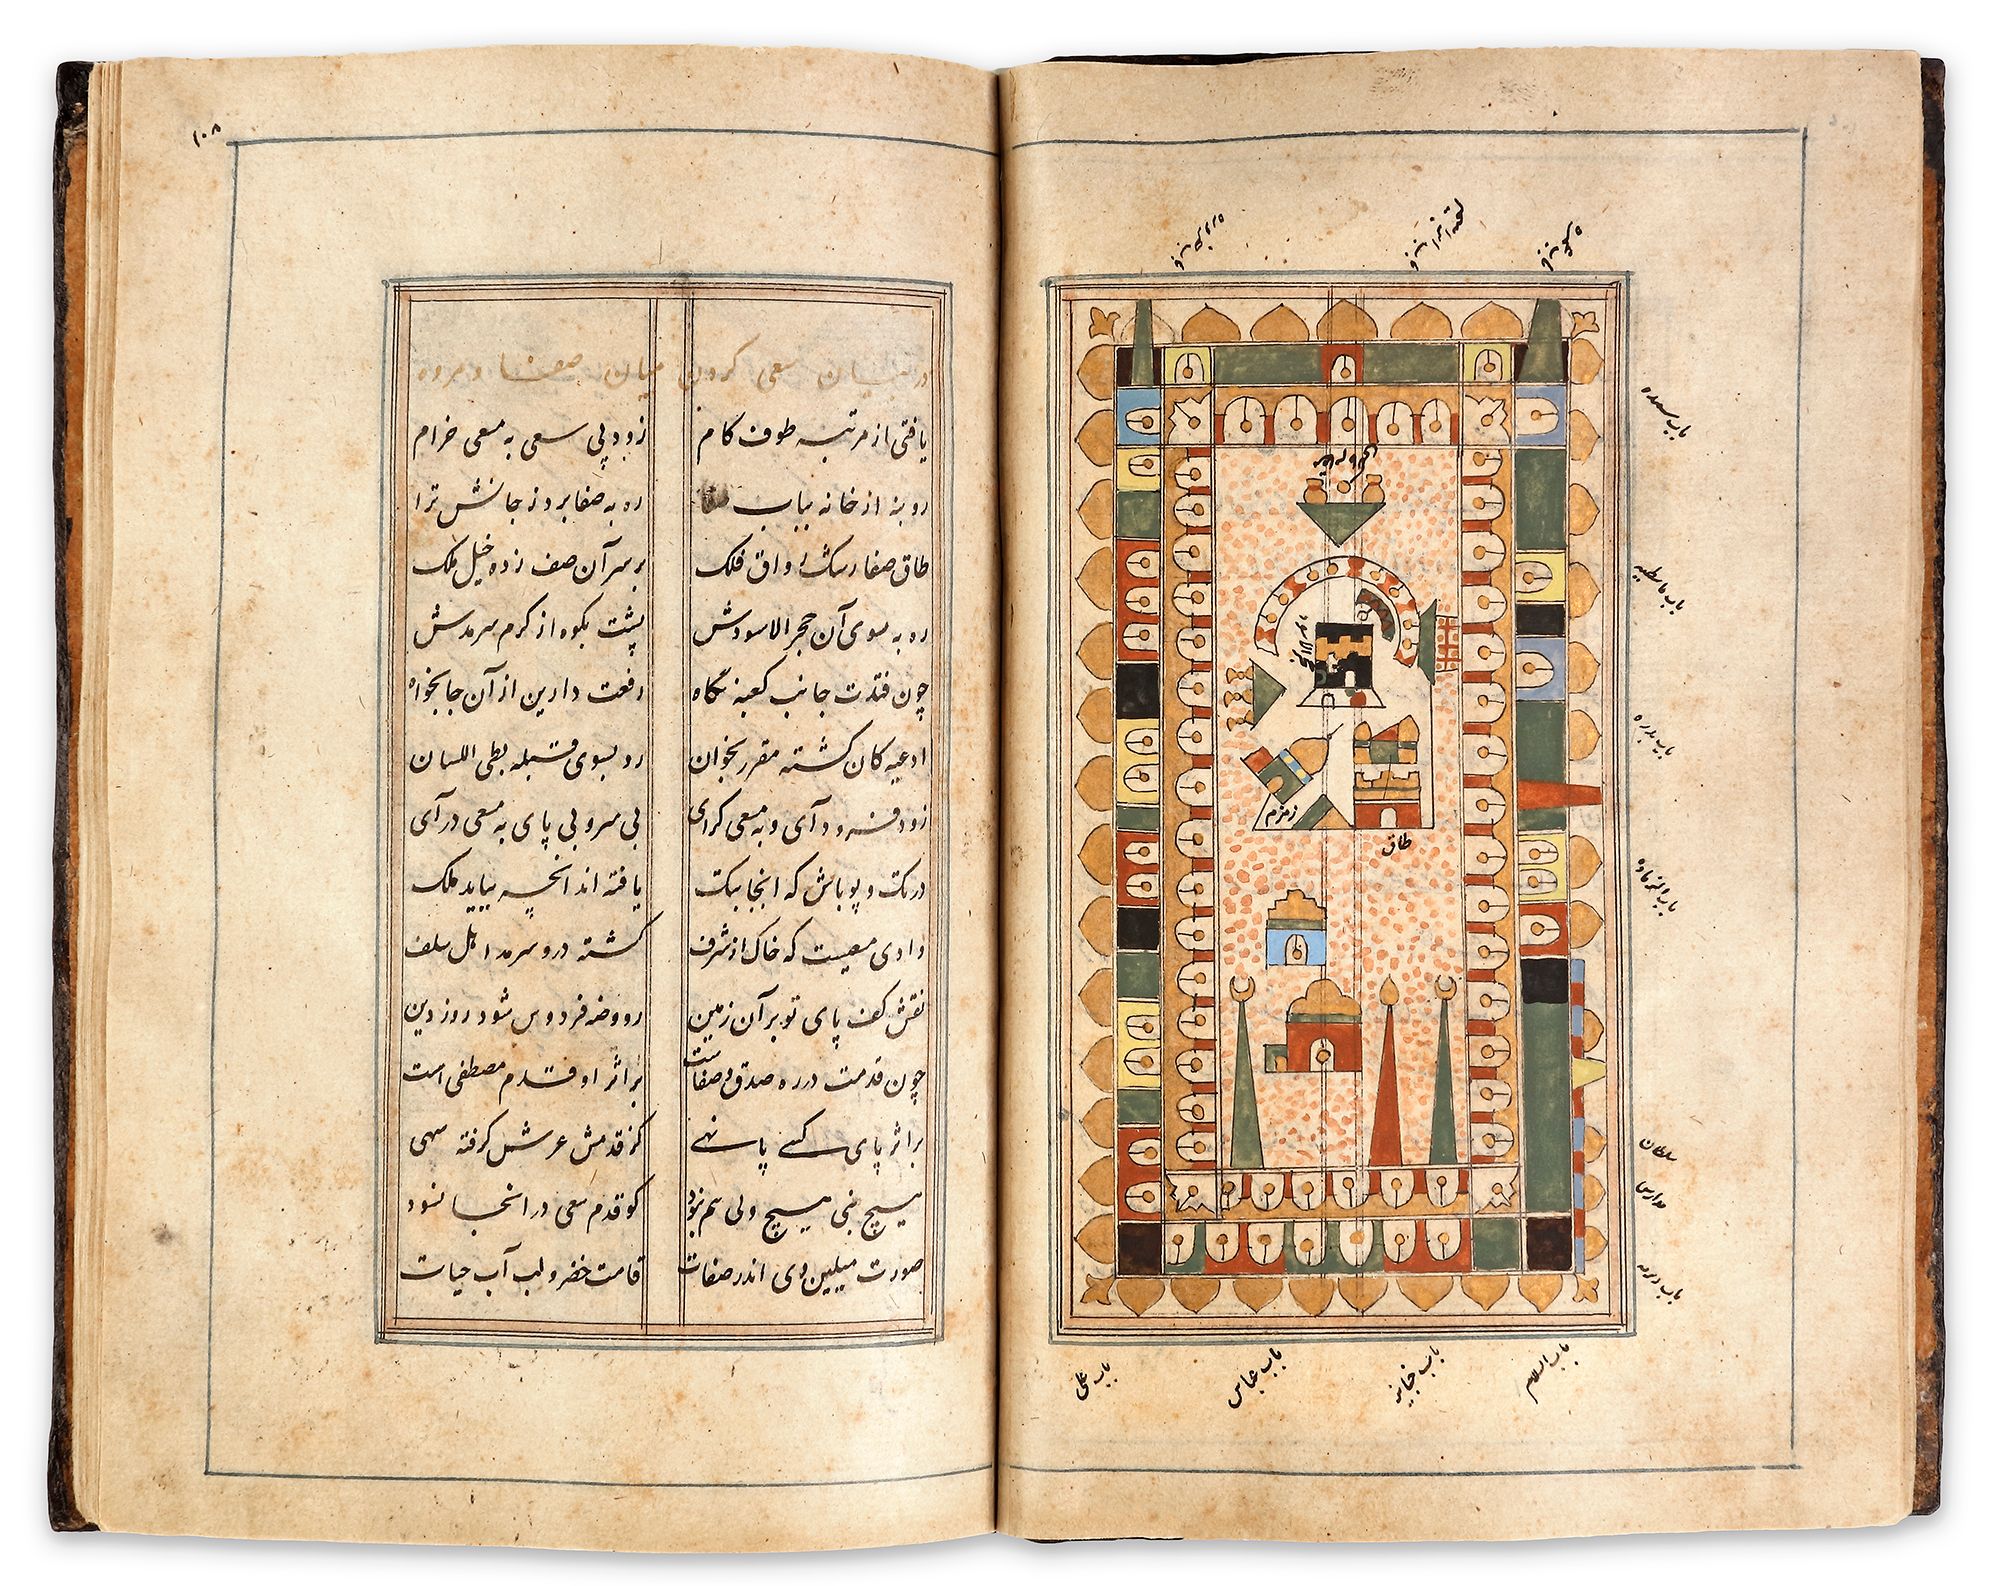 باب السلام
باب عباس
باب علی
زمزم
طاق
سلطان
مدارس
۱۰۸
در بیان سعی کردن میان صفا و مروه
یافتی از مرتبه طوف کام زود پی سعی به مسعی خرام
رو بنه از خانه بباب صفا ره به صفا برد ز جانش ترا
طاق صفا رشک رواق فلک بر سر آن صف زده خیل ملک
ره به سوی آن حجر الاسودش پشت بکوه از کرم سرمدش
چون فتدت جانب کعبه نگاه رفعت دارین از آن جا بخواه
ادعیه کان گشته مقرر بخوان رو بسوی قبله بطی اللسان
زود فرود آی و به مسعی گرای بی سر و بی پای به مسعی در آی
در تک و پو باش که اینجا بتک یافته اند انچه بباید ملک
وادی سعیست که خاک از شرف گشته درو سرمه اهل سلف
نقش کف پای تو بر آن زمین روضه فردوس شود روز دین
چون قدمت در ره صدق و صفاست بر اثر او قدم مصطفی است
بر اثر پای کسی پا نهی کز قدمش عرش گرفته بهی
هیچ نبی هیچ ولی هم نبود کو قدم سعی در انجا نسود
صورت میلین وی اندر صفات قامت خضر و لب آب حیات